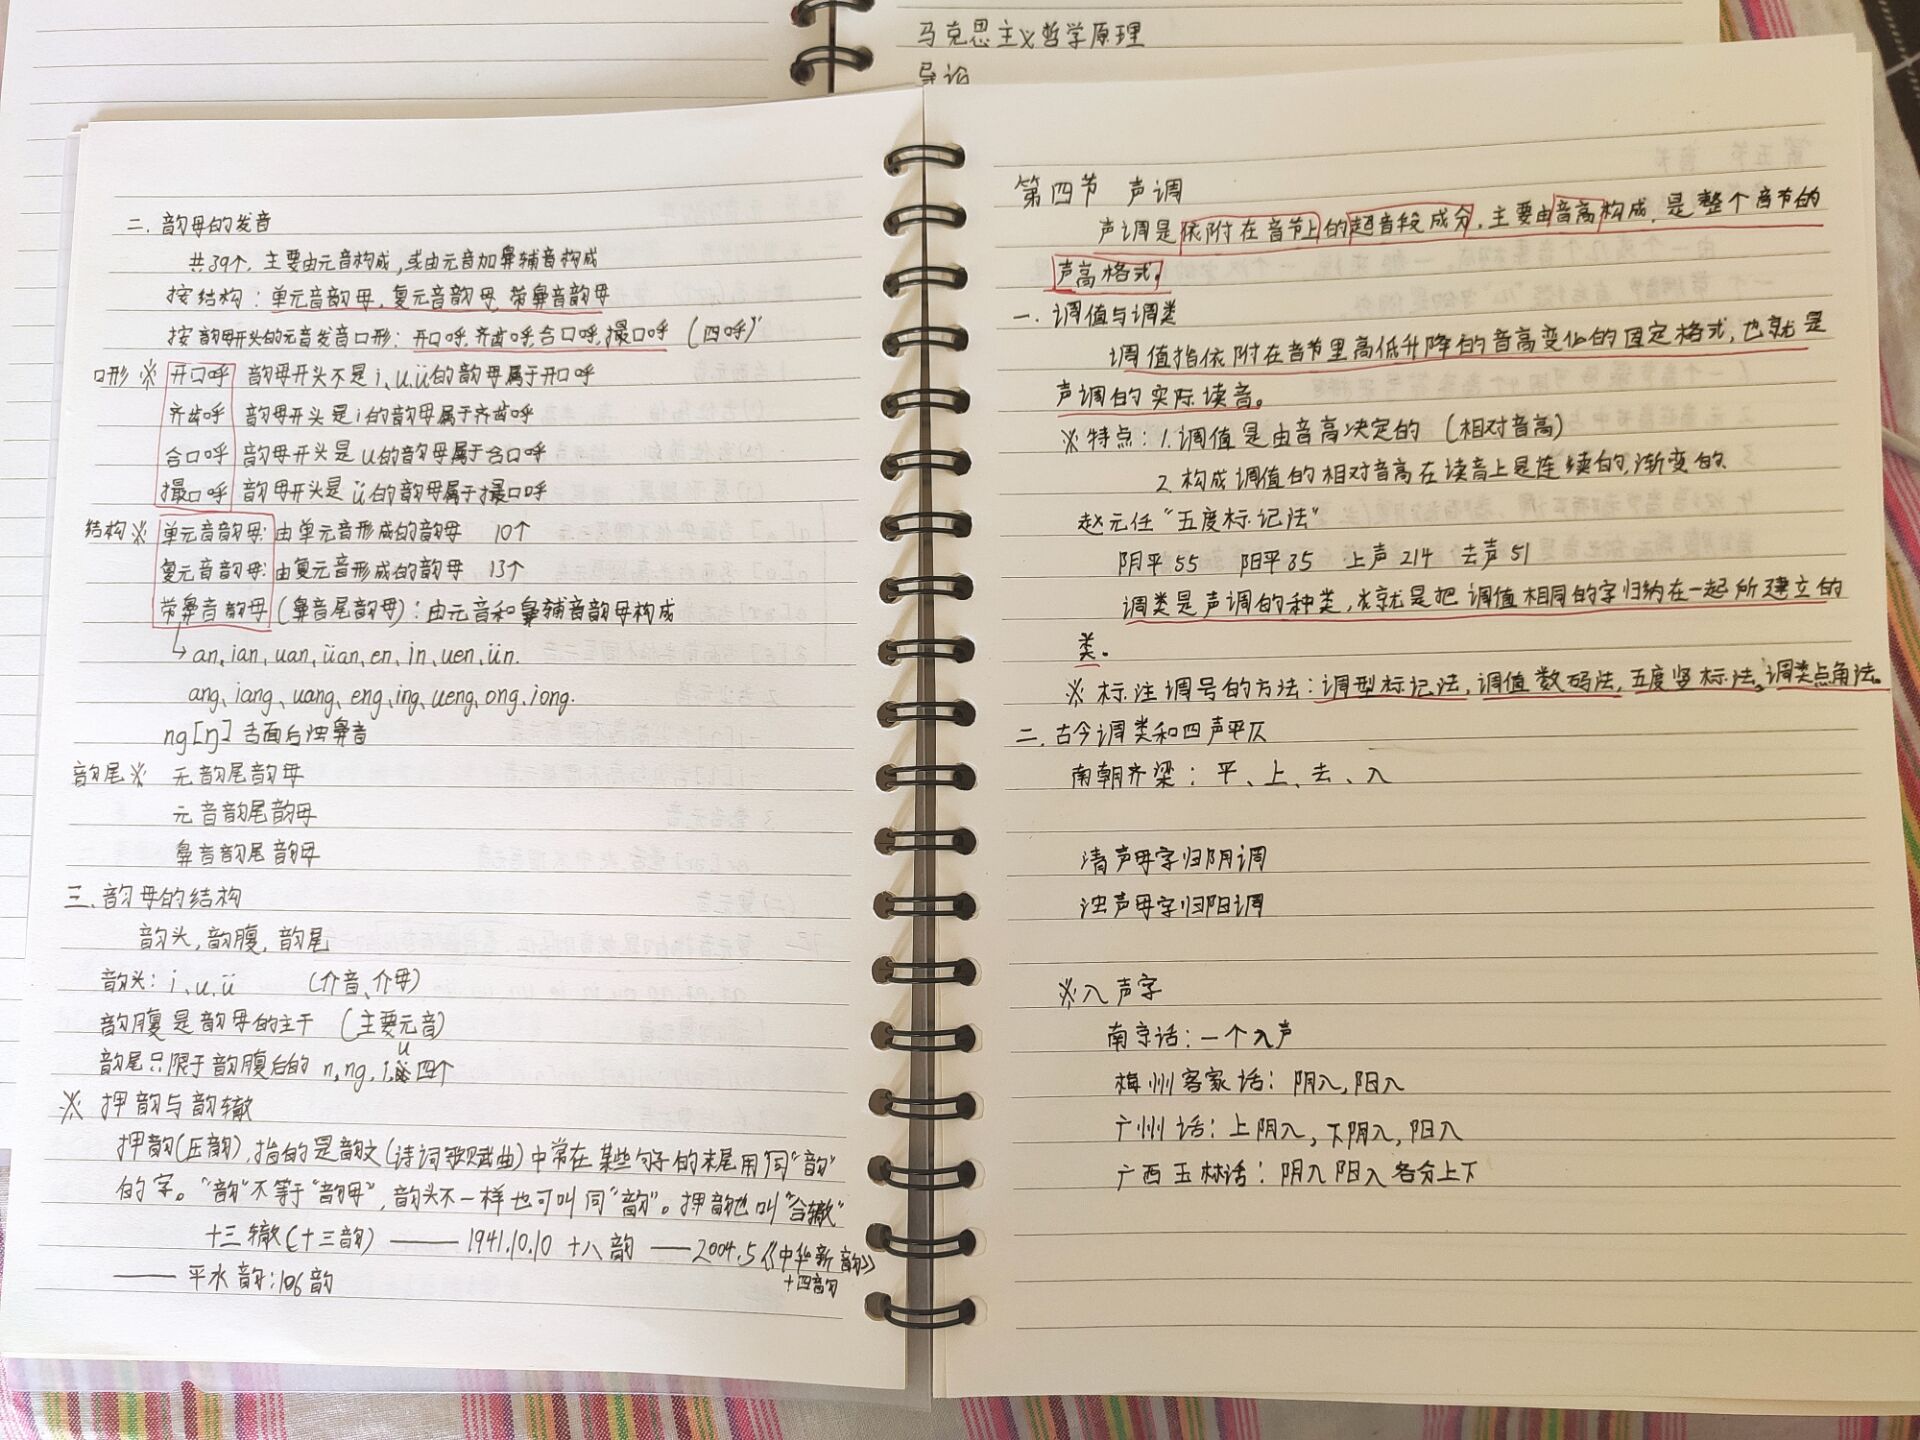 马克思主义哲学原理
导论
二. 韵母的发音
共39个, 主要由元音构成, 或由元音加鼻辅音构成
按结构: 单元音韵母, 复元音韵母, 带鼻音韵母
按韵母开头的元音发音口形: 开口呼, 齐齿呼, 合口呼, 撮口呼 (四呼)
口形 ※ 开口呼 韵母开头不是i、u、ü的韵母属于开口呼
齐齿呼 韵母开头是i的韵母属于齐齿呼
合口呼 韵母开头是u的韵母属于合口呼
撮口呼 韵母开头是ü的韵母属于撮口呼
结构 ※ 单元音韵母: 由单元音形成的韵母 10个
复元音韵母: 由复元音形成的韵母 13个
带鼻音韵母 (鼻音尾韵母): 由元音和鼻辅音韵母构成
↳ an、ian、uan、üan、en、in、uen、ün.
ang、iang、uang、eng、ing、ueng、ong、iong.
ng[ŋ] 舌面后浊鼻音
韵尾 ※ 无韵尾韵母
元音韵尾韵母
鼻音韵尾韵母
三. 韵母的结构
韵头, 韵腹, 韵尾
韵头: i、u、ü (介音、介母)
韵腹是韵母的主干 (主要元音)
韵尾只限于韵腹后的 n, ng, i, u 四个
※ 押韵与韵辙
押韵(压韵), 指的是韵文(诗词歌赋曲)中常在某些句子的末尾用同“韵”
的字。“韵”不等于“韵母”, 韵头不一样也可叫同“韵”。押韵也叫“合辙”
十三辙(十三韵) —— 1941.10.10 十八韵 —— 2004.5《中华新韵》
十四韵
—— 平水韵: 106韵
第四节 声调
声调是依附在音节上的超音段成分, 主要由音高构成, 是整个音节的
声高格式。
一. 调值与调类
调值指依附在音节里高低升降的音高变化的固定格式, 也就是
声调的实际读音。
※ 特点: 1. 调值是由音高决定的 (相对音高)
2. 构成调值的相对音高在读音上是连续的, 渐变的
赵元任“五度标记法”
阴平 55 阳平 35 上声 214 去声 51
调类是声调的种类, 也就是把调值相同的字归纳在一起所建立的
类。
※ 标注调号的方法: 调型标记法, 调值数码法, 五度竖标法, 调类点角法。
二. 古今调类和四声平仄
南朝齐梁: 平、上、去、入
清声母字归阴调
浊声母字归阳调
※ 入声字
南京话: 一个入声
梅州客家话: 阴入, 阳入
广州话: 上阴入, 下阴入, 阳入
广西玉林话: 阴入阳入各分上下